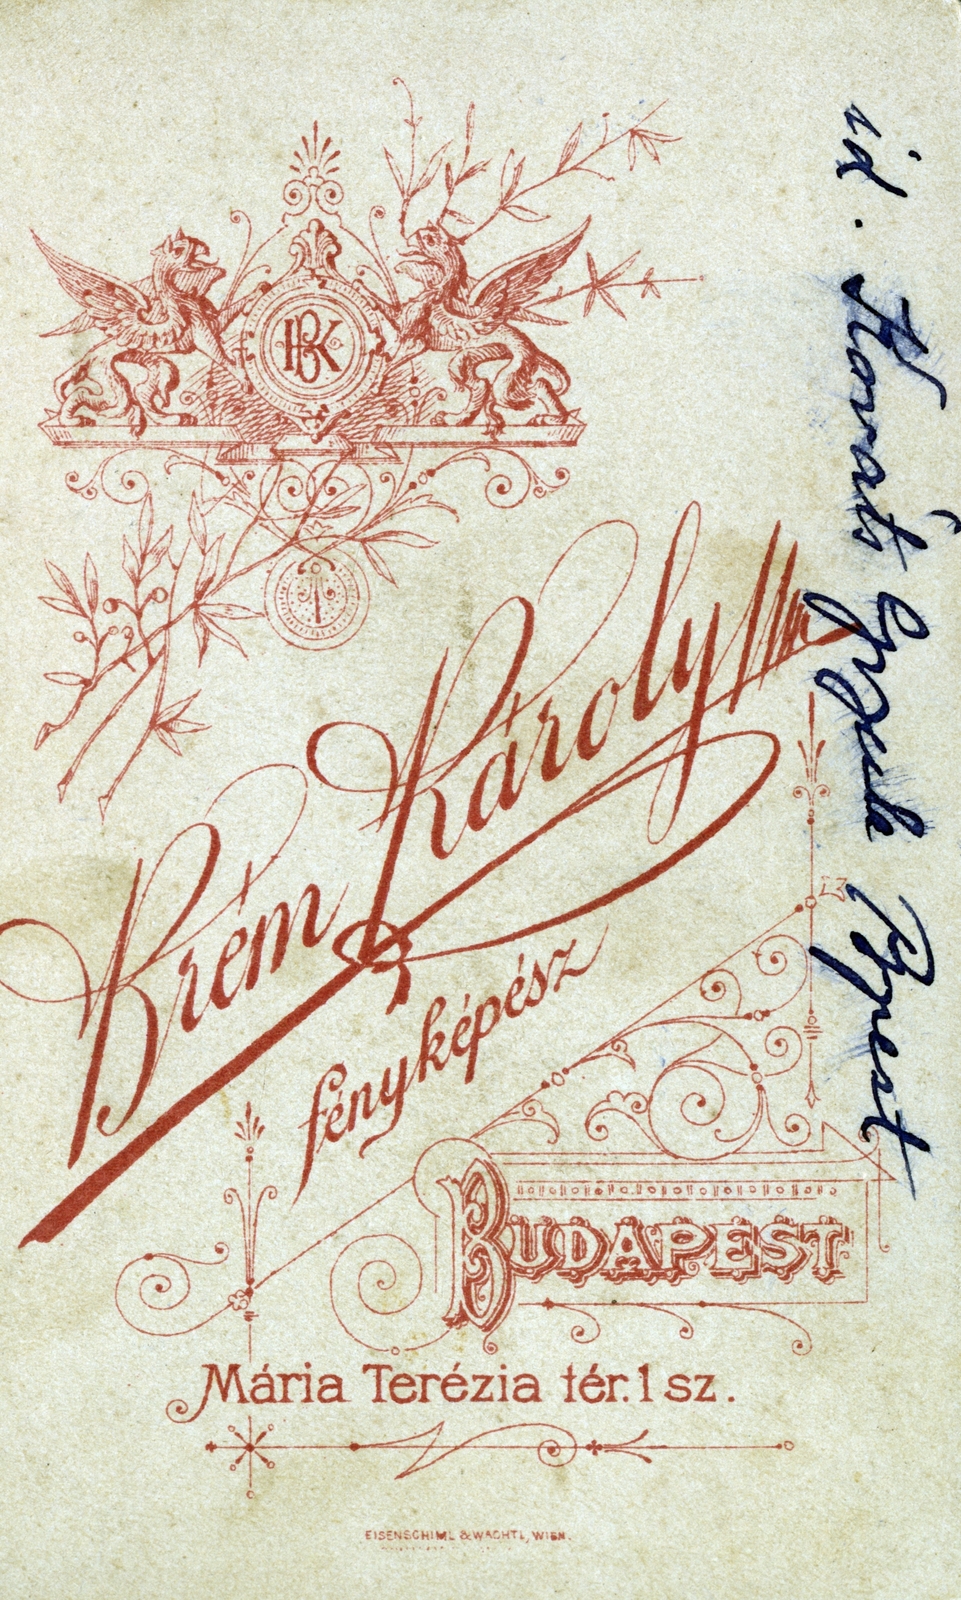 BK
Brém Károly
fényképész
BUDAPEST
Mária Terézia tér. 1 sz.
EISENSCHIML & WACHTL, WIEN.
id. Kováts Gyula